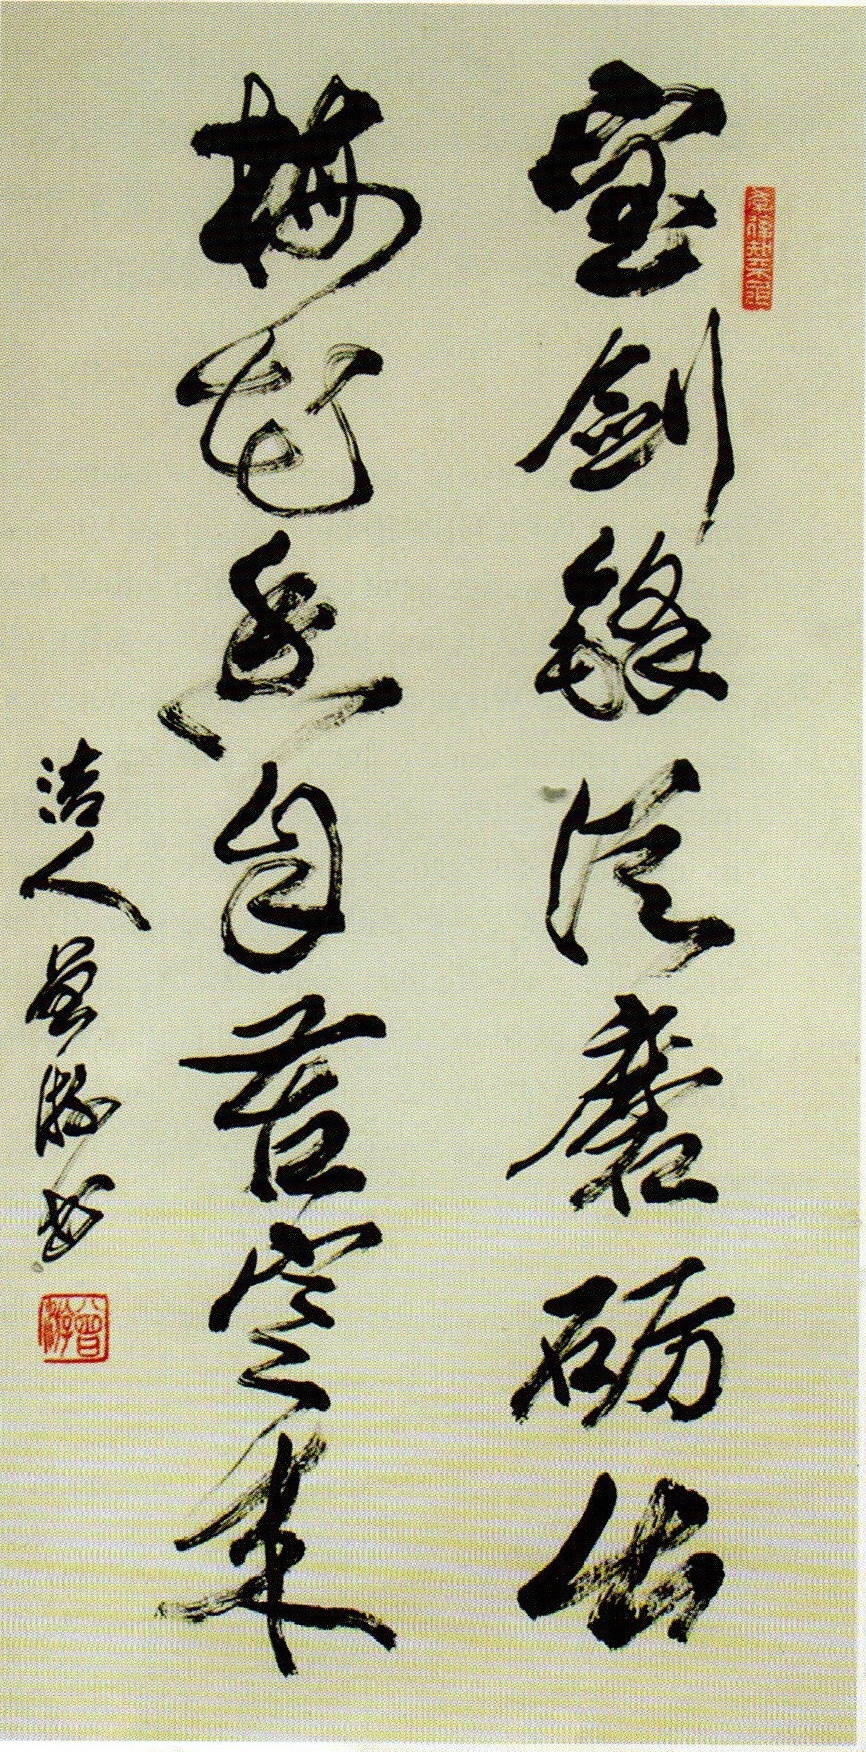 宝剑锋从磨砺出
梅花香自苦寒来
洁人曾游书
曾游